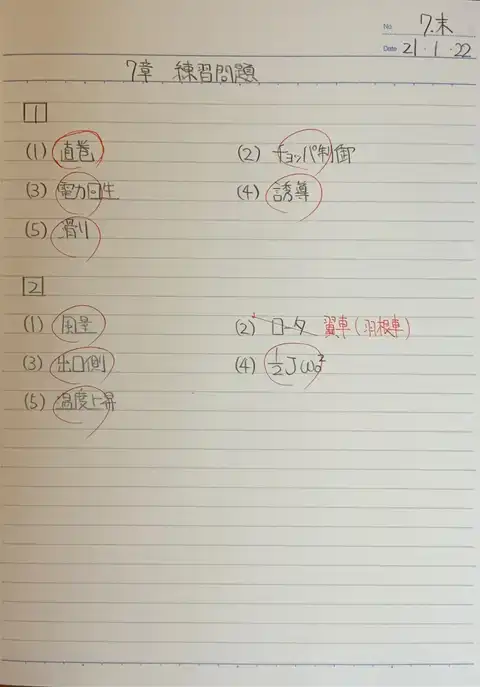 No. 7.末
Date 21・1・22
7章 練習問題
1
(1) 直巻 (2) チョッパ制御
(3) 電力回生 (4) 誘導
(5) 滑り
2
(1) 風量 (2) ロータ 翼車(羽根車)
(3) 出口側 (4) 1/2 Jω₀²
(5) 温度上昇